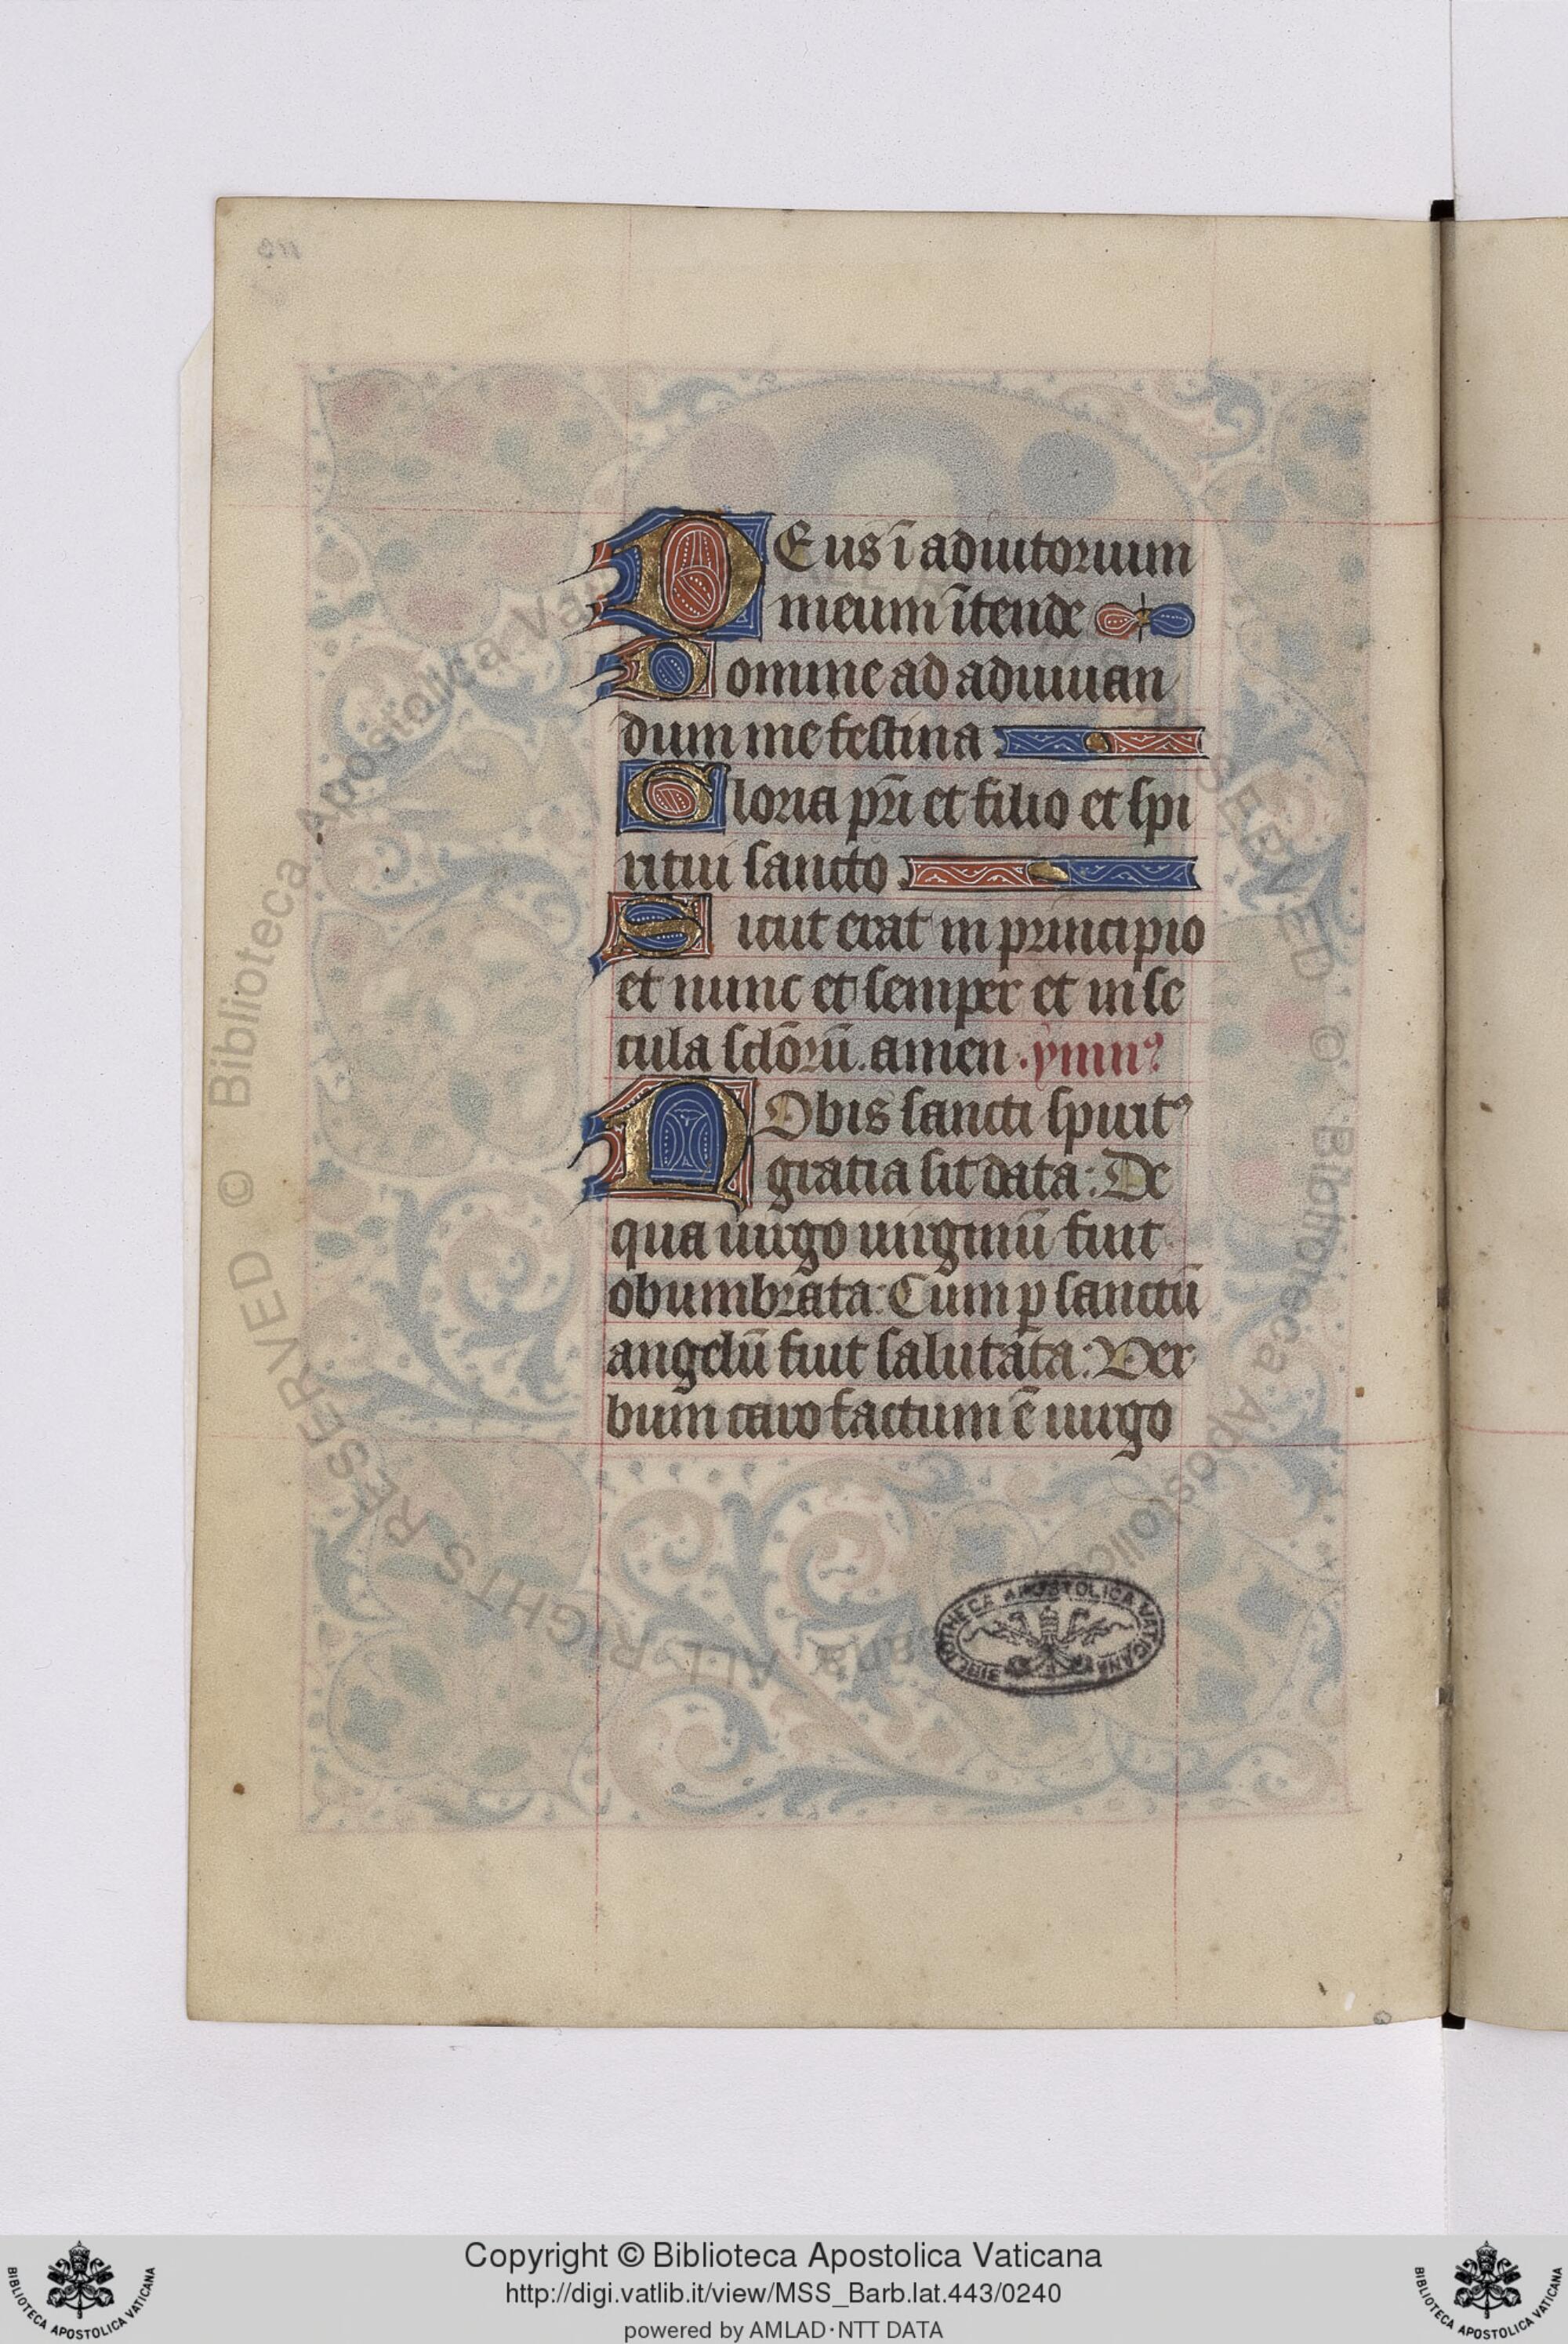 DEus ī adiutorium
meum ītende
Domine ad adiuuan
dum me festina
Gloria pr̄i et filio et spi
ritui sancto
Sicut erat in principio
et nunc et semper et in se
cula sclōrū. amen. ymnꝰ
NObis sancti spiritꝰ
gratia sit data: De
qua uirgo uirginū fuit
obumbrata: Cum ꝑ sanctū
angelū fuit salutata: Ver
bum caro factum ē uirgo
BIBLIOTHECA APOSTOLICA VATICANA
© Biblioteca Apostolica Vaticana ALL RIGHTS RESERVED
Copyright © Biblioteca Apostolica Vaticana
http://digi.vatlib.it/view/MSS_Barb.lat.443/0240
powered by AMLAD·NTT DATA
BIBLIOTECA APOSTOLICA VATICANA
BIBLIOTECA APOSTOLICA VATICANA